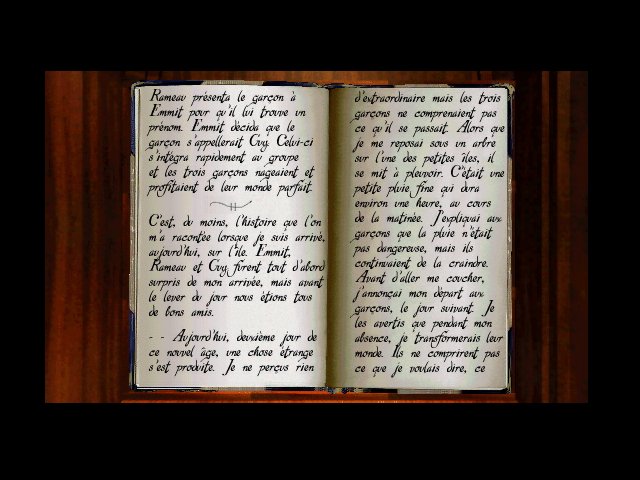 Rameau présenta le garçon à
Emmit pour qu'il lui trouve un
prénom. Emmit décida que le
garçon s'appellerait Cuy. Celui-ci
s'intégra rapidement au groupe
et les trois garçons nageaient et
profitaient de leur monde parfait.
C'est, du moins, l'histoire que l'on
m'a racontée lorsque je suis arrivé,
aujourd'hui, sur l'île. Emmit,
Rameau et Cuy furent tout d'abord
surpris de mon arrivée, mais avant
le lever du jour nous étions tous
de bons amis.
- - Aujourd'hui, deuxième jour de
ce nouvel âge, une chose étrange
s'est produite. Je ne perçus rien
d'extraordinaire mais les trois
garçons ne comprenaient pas
ce qu'il se passait. Alors que
je me reposai sous un arbre
sur l'une des petites îles, il
se mit à pleuvoir. C'était une
petite pluie fine qui dura
environ une heure, au cours
de la matinée. J'expliquai aux
garçons que la pluie n'était
pas dangereuse, mais ils
continuaient de la craindre.
Avant d'aller me coucher,
j'annonçai mon départ aux
garçons, le jour suivant. Je
les avertis que pendant mon
absence, je transformerais leur
monde. Ils ne comprirent pas
ce que je voulais dire, ce